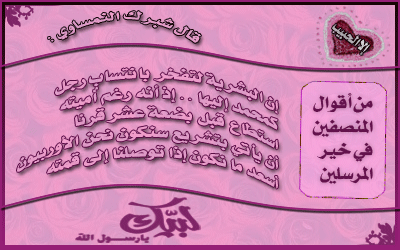 إلا الحبيب
قال شبرك النمساوي :
إن البشرية لتفخر بانتساب رجل
كمحمد إليها .. إذ أنه رغم أميته
استطاع قبل بضعة عشر قرنا
أن يأتي بتشريع سنكون نحن الأوربيون
أسعد ما نكون إذا توصلنا إلى قمته
من أقوال
المنصفين
في خير
المرسلين
لبيك
يا رسول الله